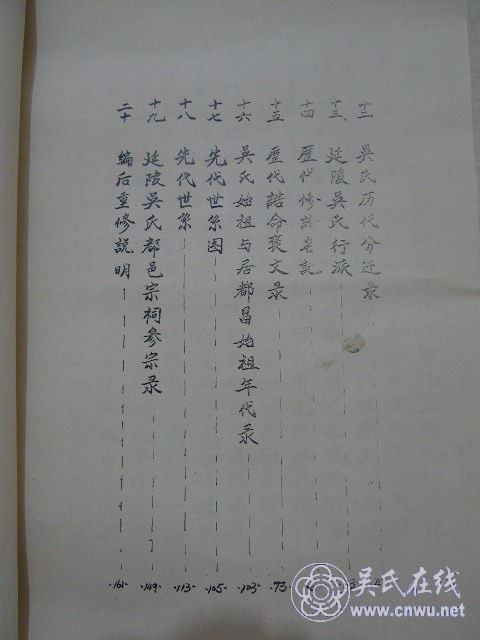 十二 吴氏历代分迁录
十三 延陵吴氏行派
十四 歷代修譜名記
十五 歷代誥命褒文录 ·73·
十六 吴氏始祖与居都昌始祖年代录 ·103·
十七 先代世系图 ·105·
十八 先代世系 ·113·
十九 延陵吴氏都邑宗祠参宗录 ·149·
二十 编后重修説明 ·161·
吴氏在线
www.cnwu.net